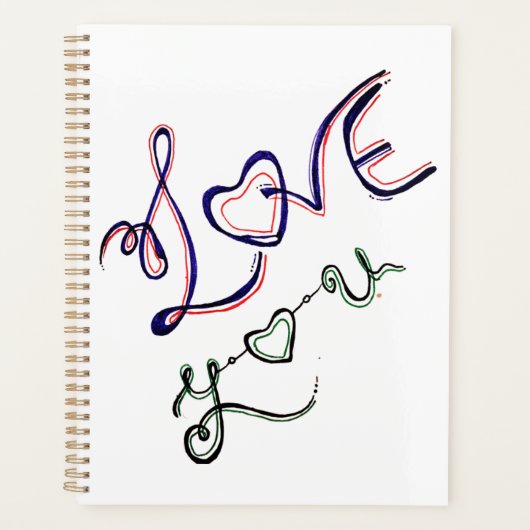 LOVE
you